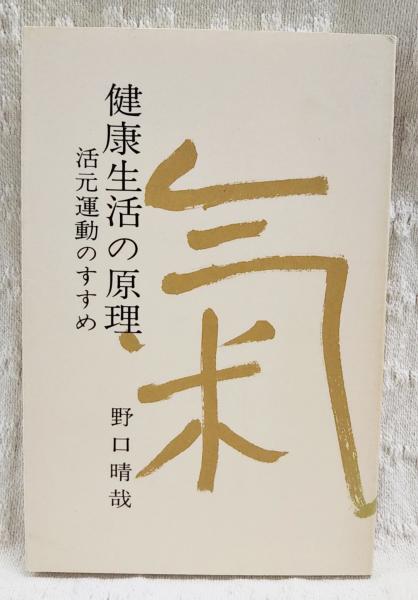 健康生活の原理
活元運動のすすめ
氣
野口晴哉